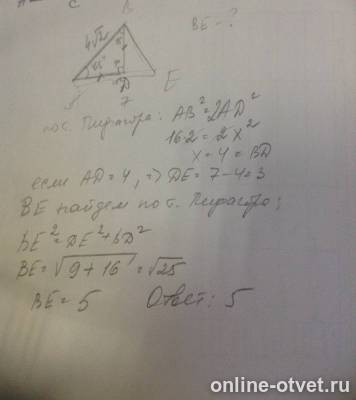 C
B
BE - ?
4√2
45°
D
E
7
по т. Пифагора: AB²=2AD²
16·2=2x²
x=4=BD
если AD=4, => DE=7-4=3
BE найдем по т. Пифагора:
bE²=DE²+bD²
BE=√9+16=√25
BE=5 Ответ: 5
online-otvet.ru